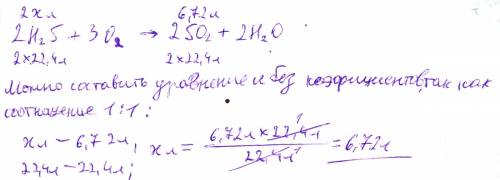 2хл 6,72л
2H₂S + 3O₂ → 2SO₂ + 2H₂O
2×22,4л 2×22,4л
Можно составить уравнение и без коефициентов, так как
соотношение 1:1:
хл – 6,72л, хл = 6,72л × 22,4л¹ / 22,4л¹ = 6,72л
22,4л – 22,4л;